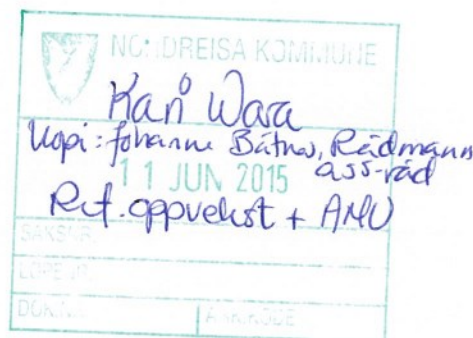 NORDREISA KOMMUNE
Kari Wara
Kopi: Johanne Båtnes, Rådmann
ass-råd
11 JUN 2015
Ref. oppvekst + AMU
SAKSNR.
LØPENR.
DOK.NR.
ARK.KODE